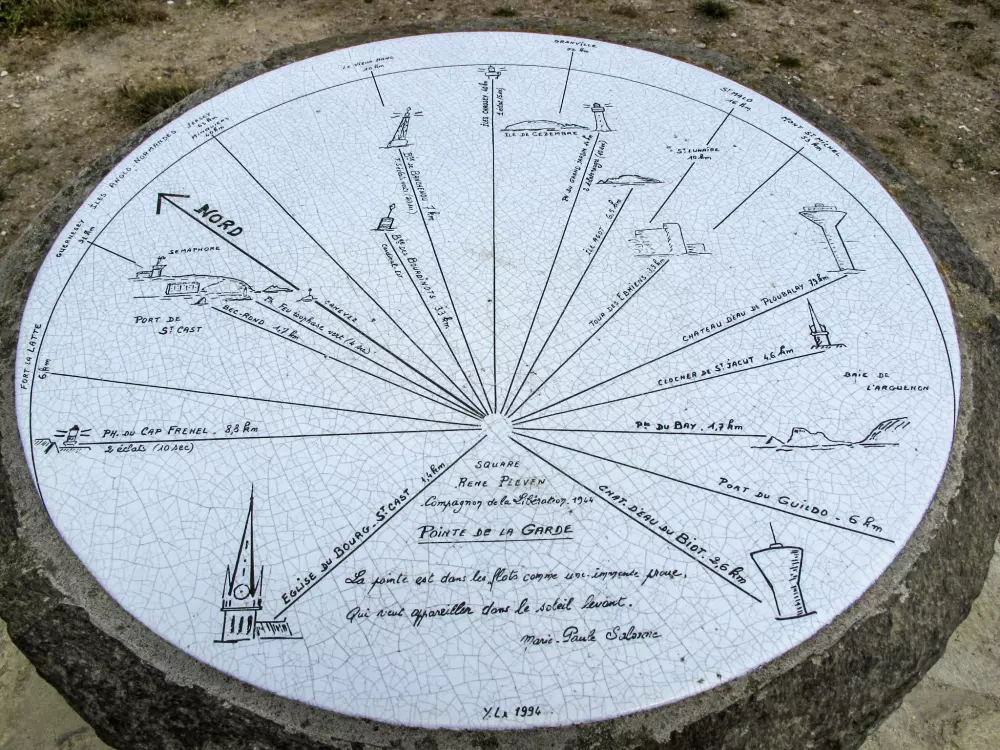 GRANVILLE
LE VIEUX BANC
ILES CHAUSEY
ST MALO
16 km
MONT ST MICHEL
53 km
ILES ANGLO-NORMANDES
JERSEY
MINQUIERS
GUERNESEY
ILE DE CEZEMBRE
ST LUNAIRE
10 km
NORD
SEMAPHORE
PORT DE
ST CAST
BEC-ROND 1,7 km
CANEVEZ
Bse DES BOURDINOTS 3,5 km
7 km
ILE AGOT 6,5 km
TOUR DES EBHIENS 3,5 km
CHATEAU D'EAU DE PLOUBALAY 7,9 km
CLOCHER DE ST JACUT 4,6 km
BAIE DE
L'ARGUENON
FORT LA LATTE
6 km
PH. DU CAP FREHEL . 8,8 km
2 éclats (10 sec)
Pte DU BAY . 1,7 km
PORT DU GUILDO - 6 km
EGLISE DU BOURG. ST CAST 1,4 km
CHAT. D'EAU DU BIOT. 2,6 km
SQUARE
RENE PLEVEN
Compagnon de la Libération. 1944
POINTE DE LA GARDE
La pointe est dans les flots comme une immense proue,
Qui veut appareiller dans le soleil levant.
Marie-Paule Salonne
Y.Lx 1994